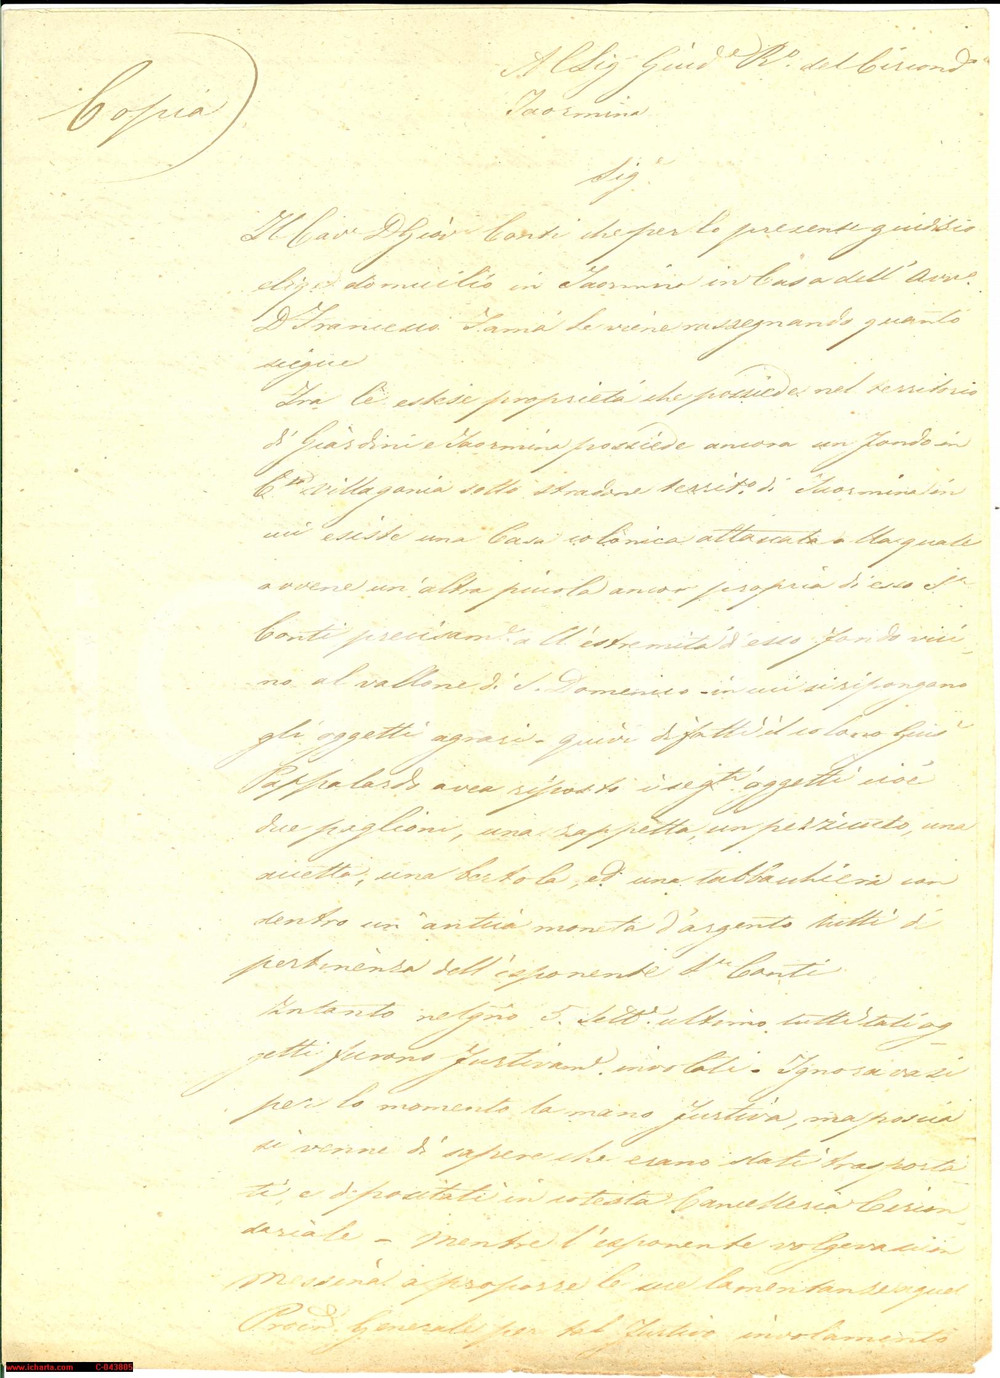 Copia
Al Sig.r Giud.e R.o del Circond.o
Taormina
Sig.r
Il Cav.r D Giov.i Conti che per lo presente giudizio
elige domicilio in Taormina in Casa dell' Avv.o
D Francesco Tamà Le viene rassegnando quanto
siegue
Tra le estese proprietà che possiede nel territorio
di Giardini e Taormina possiede ancora un fondo in
C.da Villagonia sotto stradone territ.o di Taormina in
cui esiste una Casa colonica attaccata alla quale
avvene un' altra piccola ancor propria di esso S.r
Conti precisam.e all' estremità d' esso fondo vici-
no al vallone di S. Domenico - in cui si ripongano
gli oggetti agrari - quivi difatti il colono Gius.e
Pappalardo avea riposto i seg.ti oggetti cioè
due paglioni, una zappetta, un pezzicuto, una
accetta, una bertola, ed una tabbacchiera con
dentro un' antica moneta d' argento tutti di
pertinenza dell' esponente S.r Conti
Intanto nel gno 5. Sett.e ultimo tutti tali og-
getti furono furtivam.e involati - Ignoravasi
per lo momento la mano furtiva, ma poscia
si venne di sapere che erano stati trasporta-
ti, e depositati in cotesta Cancelleria Circon-
dariale - Mentre l' esponente volgevasi in
Messina a proporre le sue lamentanze a quel
Proc.r Generale per tal furtivo involamento
www.icharta.com C-043805